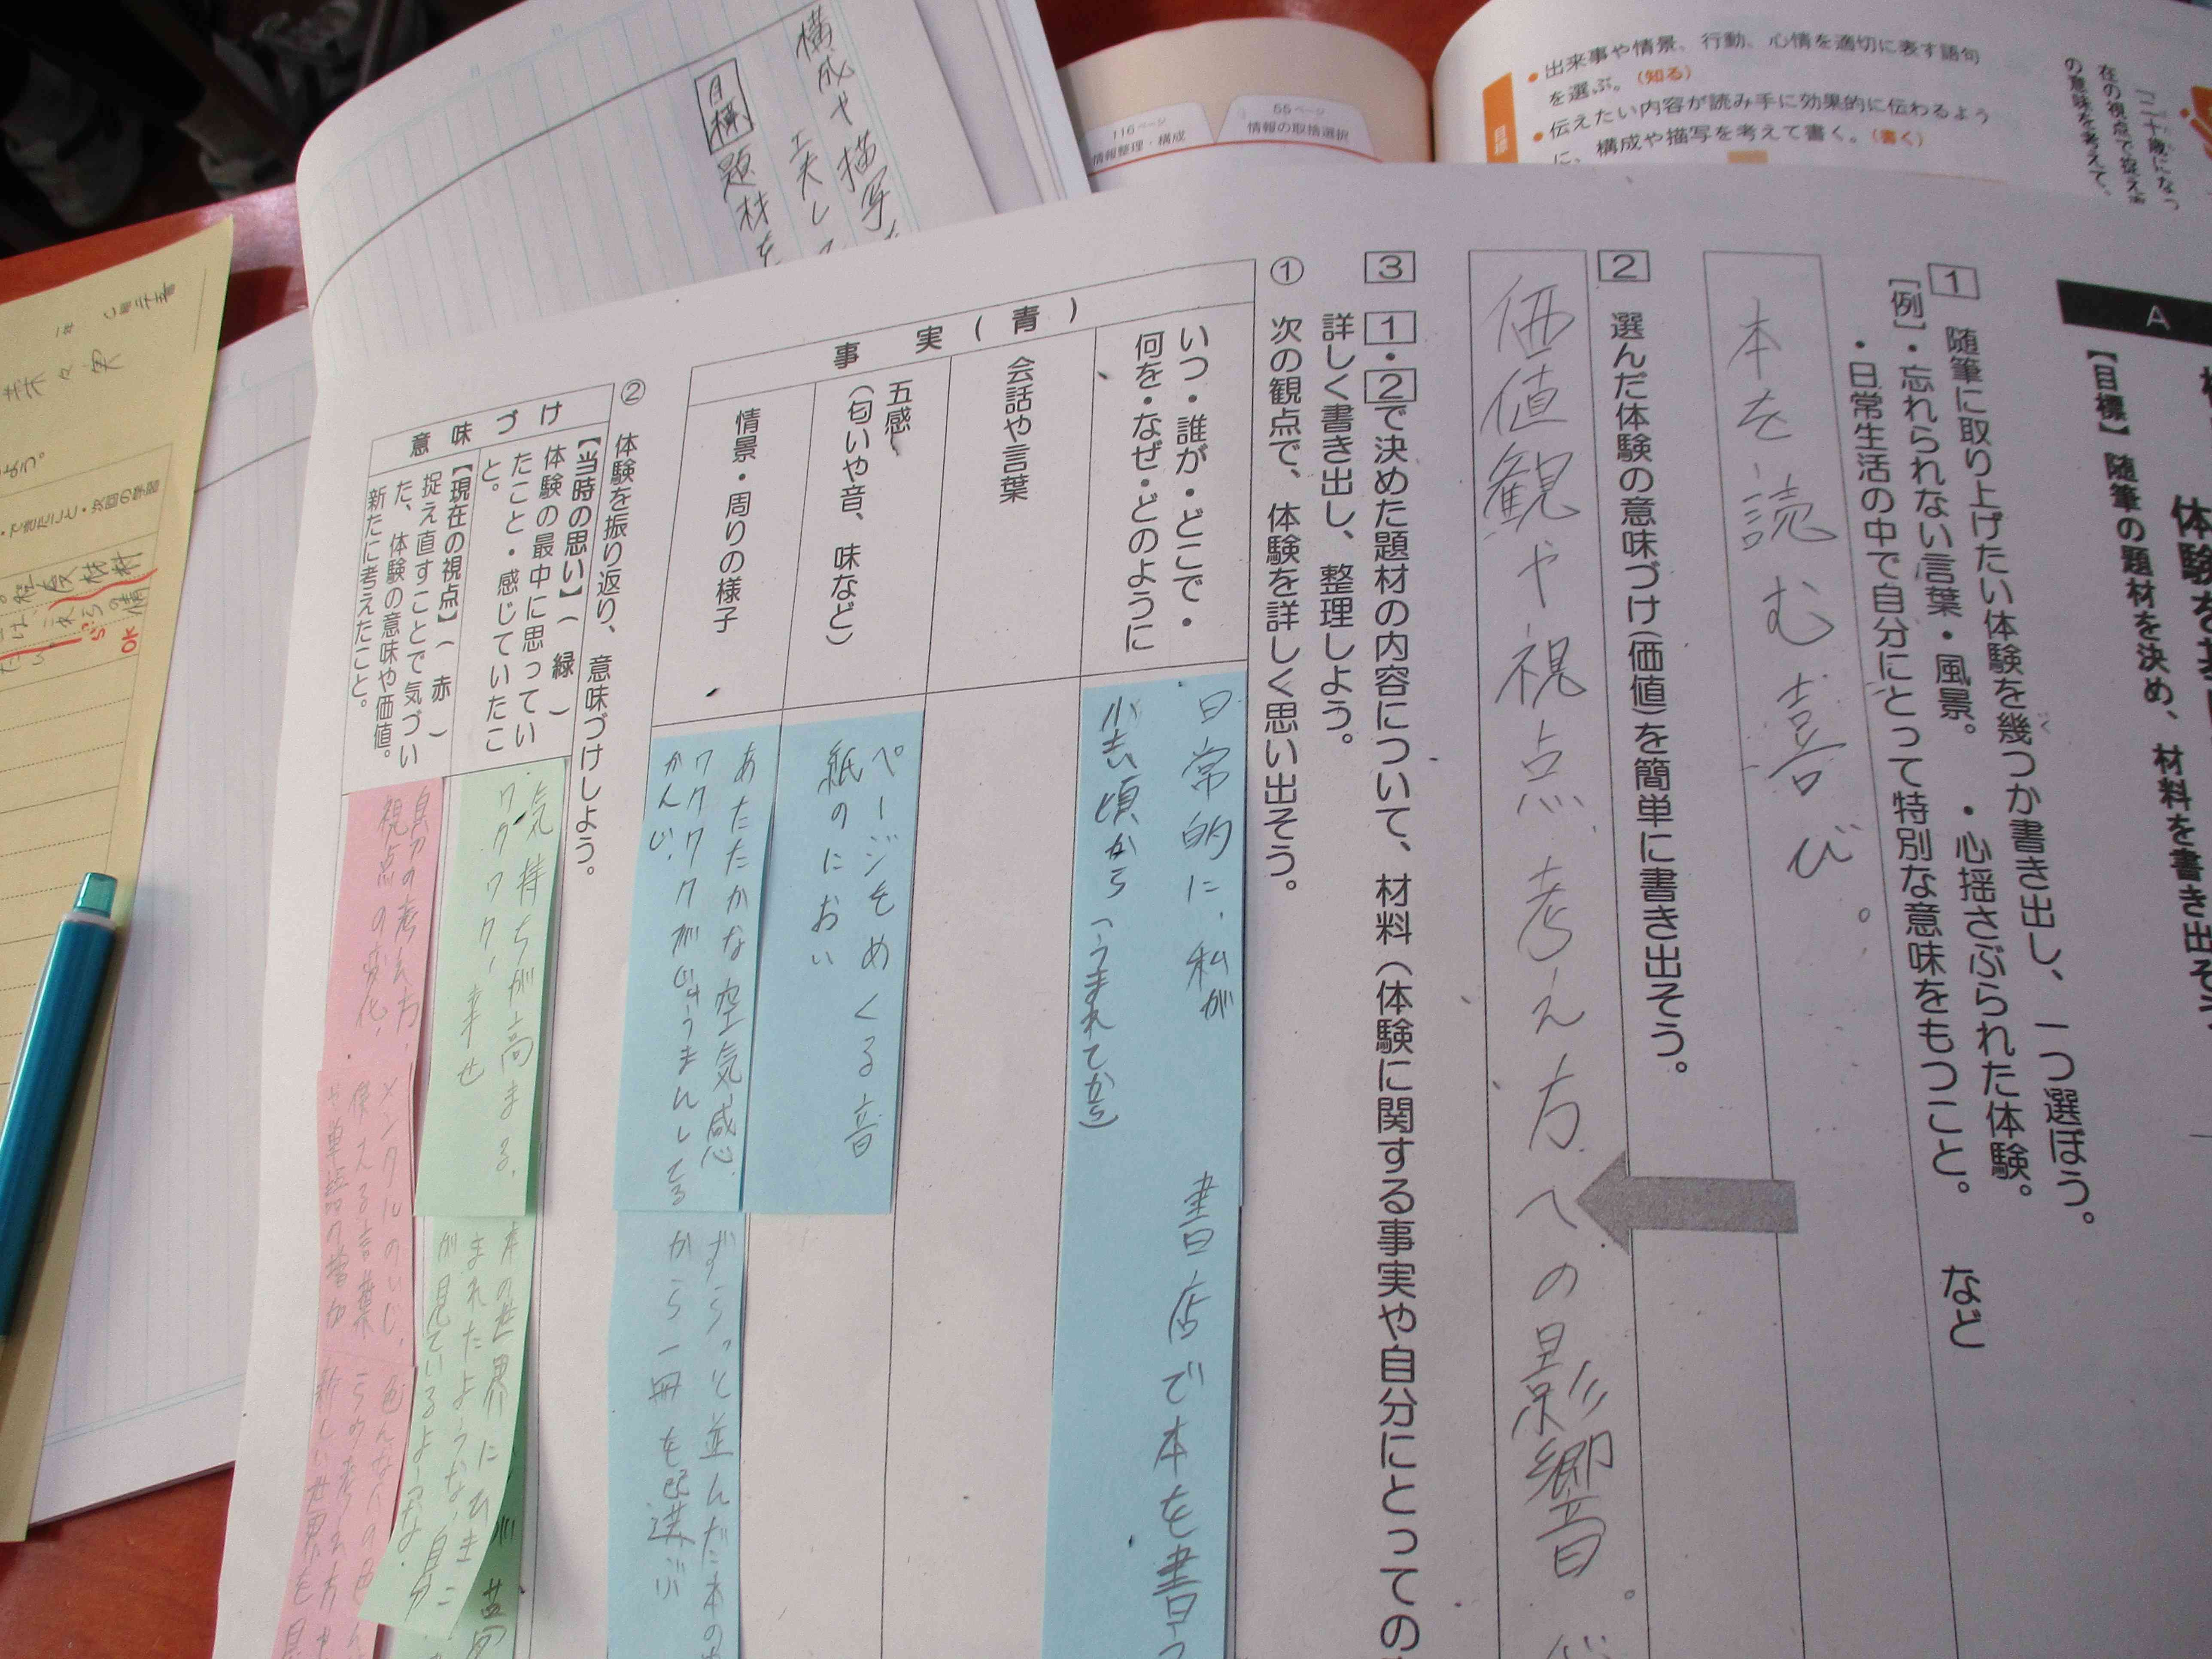 A
【目標】随筆の題材を決め、材料を書き出そう
1 随筆に取り上げたい体験を幾つか書き出し、一つ選ぼう。
【例】・忘れられない言葉・風景。・心揺さぶられた体験。
・日常生活の中で自分にとって特別な意味をもつこと。 など
本を読む喜び。
2 選んだ体験の意味づけ(価値)を簡単に書き出そう。
価値観や視点考え方への影響。
3 1・2で決めた題材の内容について、材料(体験に関する事実や自分にとっての
詳しく書き出し、整理しよう。
① 次の観点で、体験を詳しく思い出そう。
事実(青)
いつ・誰が・どこで・
何を・なぜ・どのように
日常的に、私が
小さい頃から(うまれてから)
書店で本を
会話や言葉
五感
(匂いや音、味など)
ページをめくる音
紙のにおい
情景・周りの様子
あたたかな空気感
ワクワクがじゅうまんしてる
かんじ
ずらっと並んだ本の
から一冊を選ぶ
② 体験を振り返り、意味づけしよう。
意味づけ
【当時の思い】(緑)
体験の最中に思ってい
たこと・感じていたこ
と。
気持ちが高まる、
ワクワク、幸せ
本の世界に
まれたような
が見ているような、自分
【現在の視点】(赤)
捉え直すことで気づい
た、体験の意味や価値。
新たに考えたこと。
の考え方、
視点の変化、
メンタルのいじ、
使える言葉
や単語の増加
色んな人の色
の考え方や
新しい世界を
構成や描写
工夫して
目標 題材を
116ページ
情報整理・構成
55ページ
情報の取捨選択
目標
・出来事や情景、行動、心情を適切に表す語句
を選ぶ。(知る)
・伝えたい内容が読み手に効果的に伝わるよう
に、構成や描写を考えて書く。(書く)
「二十歳になっ
在の視点で捉え
の意味を考えて、
よう。
・できたこと・次回の学習
OK